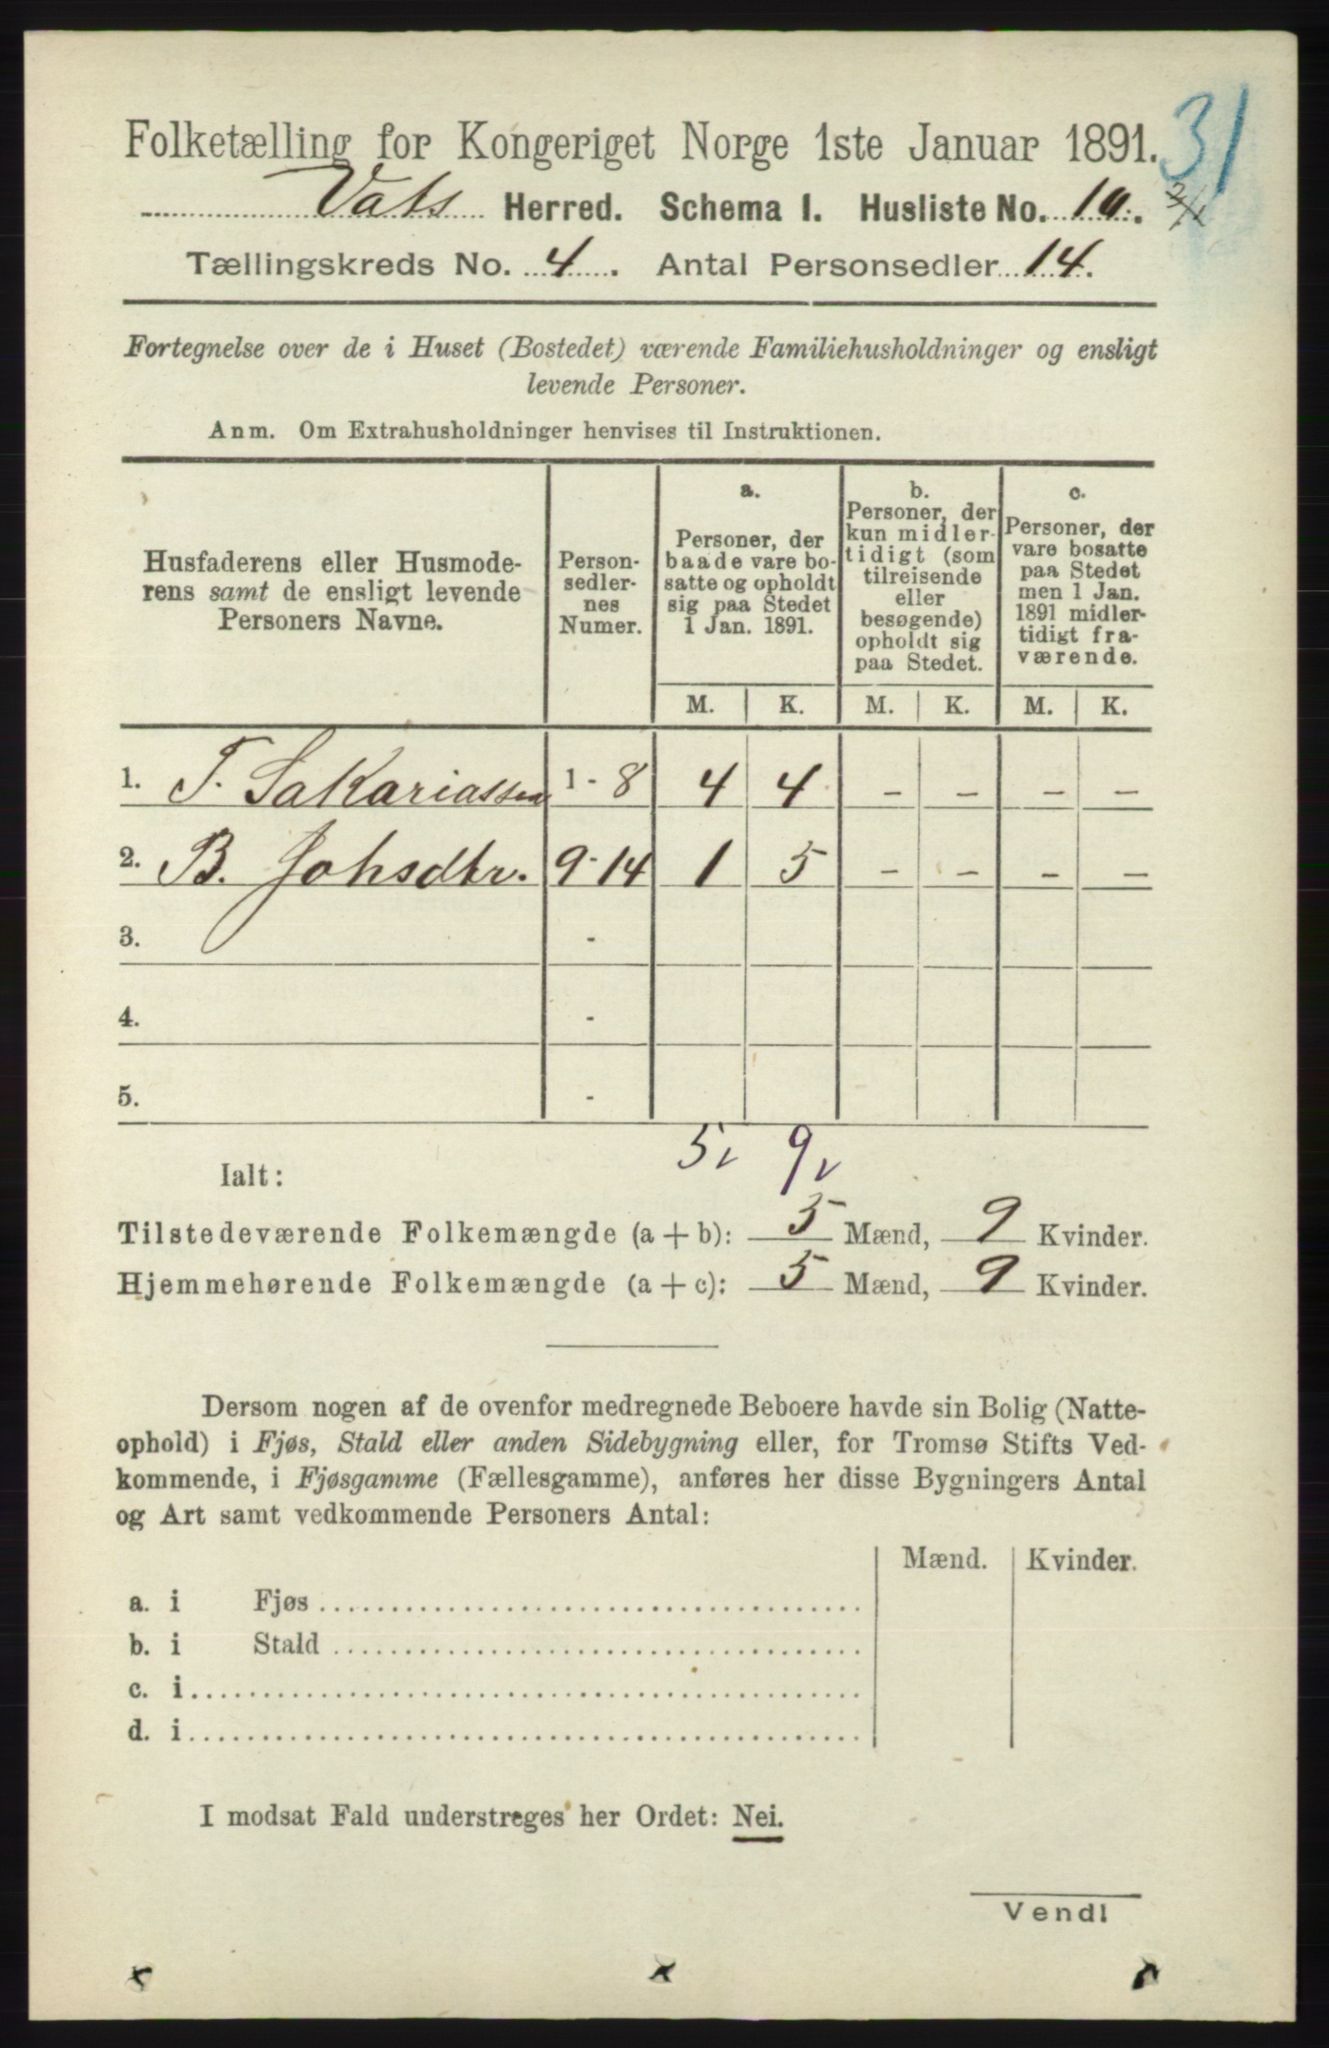 31
Folketælling for Kongeriget Norge 1ste Januar 1891.
Vats Herred. Schema I. Husliste No. 10. 2/1
Tællingskreds No. 4. Antal Personsedler 14.
Fortegnelse over de i Huset (Bostedet) værende Familiehusholdninger og ensligt
levende Personer.
Anm. Om Extrahusholdninger henvises til Instruktionen.
Husfaderens eller Husmode-
rens samt de ensligt levende
Personers Navne.
Person-
sedler-
nes
Numer.
a.
Personer, der
baade vare bo-
satte og opholdt
sig paa Stedet
1 Jan. 1891.
b.
Personer, der
kun midler-
tidigt (som
tilreisende
eller
besøgende)
opholdt sig
paa Stedet.
c.
Personer, der
vare bosatte
paa Stedet
men 1 Jan.
1891 midler-
tidigt fra-
værende.
M. K. M. K. M. K.
1. T. Sakariassen 1 - 8 4 4 - - - -
2. B. Johsdtr. 9 - 14 1 5 - - - -
3. -
4. -
5. -
5 9
Ialt:
Tilstedeværende Folkemængde (a + b): 5 Mænd, 9 Kvinder.
Hjemmehørende Folkemængde (a + c): 5 Mænd, 9 Kvinder.
Dersom nogen af de ovenfor medregnede Beboere havde sin Bolig (Natte-
ophold) i Fjøs, Stald eller anden Sidebygning eller, for Tromsø Stifts Ved-
kommende, i Fjøsgamme (Fællesgamme), anføres her disse Bygningers Antal
og Art samt vedkommende Personers Antal:
Mænd. Kvinder.
a. i Fjøs
b. i Stald
c. i
d. i
I modsat Fald understreges her Ordet: Nei.
Vend!